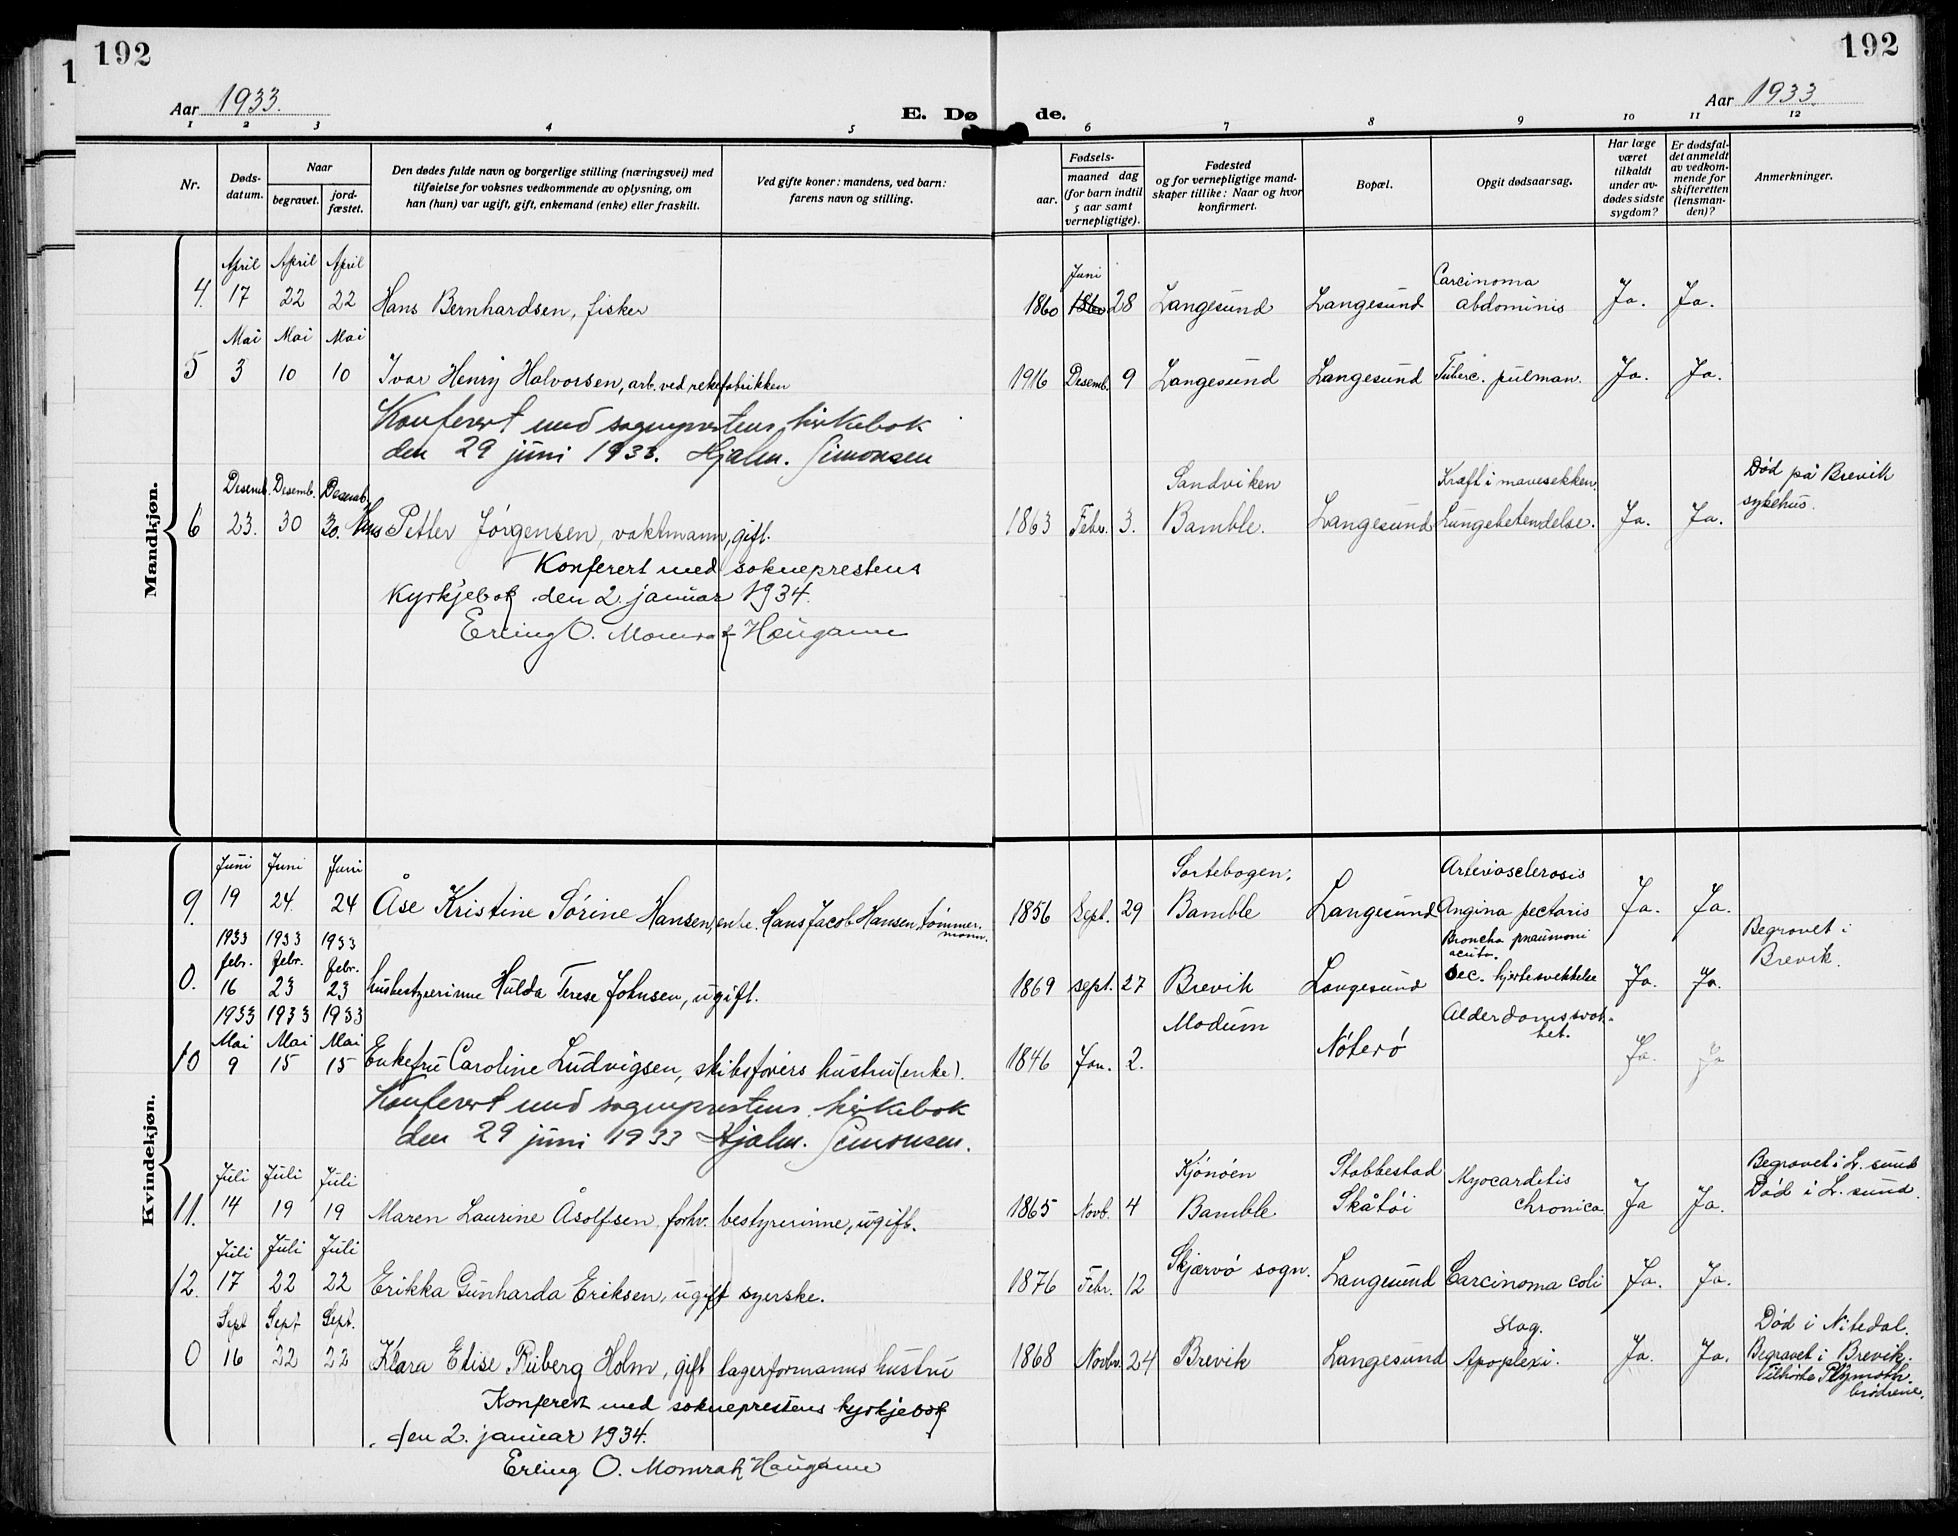 192
192
1
Aar 1933.
E. Dø
de.
Aar 1933.
1 2 3 4 5
6 7 8 9 10 11 12
Nr.
Døds-
datum.
Naar
begravet.
jord-
fæstet.
Den dødes fulde navn og borgerlige stilling (næringsvei) med
tilføielse for voksnes vedkommende av oplysning, om
han (hun) var ugift, gift, enkemand (enke) eller fraskilt.
Ved gifte koner: mandens, ved barn:
farens navn og stilling.
Fødsels-
aar.
maaned dag
(for barn indtil
5 aar samt
vernepligtige).
Fødested
og for vernepligtige mand-
skaper tillike: Naar og hvor
konfirmert.
Bopæl.
Opgit dødsaarsag.
Har læge
været
tilkaldt
under av-
dødes sidste
sygdom?
Er dødsfal-
det anmeldt
av vedkom-
mende for
skifteretten
(lensman-
den)?
Anmerkninger.
Mandkjøn.
April April April Juni Carcinoma
4. 17 22 22 Hans Bernhardsen, fisker 1860 1860 28 Langesund Langesund abdominis Ja. Ja.
Mai Mai Mai
5 3 10 10 Ivar Henry Halvorsen, arb. ved rekefabrikken 1916 Desemb. 9 Langesund Langesund Tuberc. pulman. Ja. Ja.
Konferert med sogneprestens kirkebok
den 29 juni 1933. Hjalm. Simonsen
Desemb. Desemb. Desemb. Sandviken Kræft i mavesekken. Død på Brevik
sykehus.
6 23. 30 30. Hans Petter Jørgensen, vaktmann, gift. 1863 Febr. 3. Bamble. Langesund Lungebetendelse. Ja. Ja.
Konferert med sokneprestens
kyrkjebok den 2. januar 1934.
Erling O. Momrak Haugann
Kvindekjøn.
Juni Juni Juni Sortebogen, Arteriosclerosis
9. 19 24. 24 Åse Kristine Sørine Hansen, enke. Hans Jacob Hansen, tømmer-
mann. 1856 Sept. 29 Bamble Langesund Angina pectoris Ja. Ja.
1933 1933 1933 Broncho pnaumoni Begravet i
febr. febr. febr. acuta. Brevik.
0. 16 23 23 husbestyrerinne Hulda Terese Johnsen, ugift. 1869 sept. 27 Brevik Langesund sec. hjertesvekkelse Ja. Ja.
1933 1933 1933 Modum Alderdomssvak-
Mai Mai Mai het.
10 9 15 15 Enkefru Caroline Ludvigsen, skibsførers hustru (enke). 1846 Jan. 2. Nøterø Ja. Ja
Konferert med sogneprestens kirkebok
den 29 juni 1933 Hjalm. Simonsen.
Juli Juli Juli Kjønøen Stabbestad Myocarditis Begravet i L.sund
11. 14 19 19 Maren Laurine Åsolfsen, forhv. bestyrerinne, ugift. 1865 Novb. 4 Bamble Skåtøi chronica Ja Ja. Død i L.sund.
Juli Juli Juli
12. 17 22 22 Erikka Gunharda Eriksen, ugift syerske. 1876 Febr. 12 Skjærvø sogn. Langesund Carcinoma coli Ja. Ja.
Sept Sept Sept. Slag. Død i Nitedal.
0 16 22 22 Klara Elise Riiberg Holm, gift lagerformanns hustru 1868 Novbr. 24 Brevik Langesund Apoplexi. Ja. Ja. Begravet i Brevik.
Tilhørte Plymoth
brødrene.
Konferert med sokneprestens kyrkjebok
den 2. januar 1934.
Erling O. Momrak Haugann